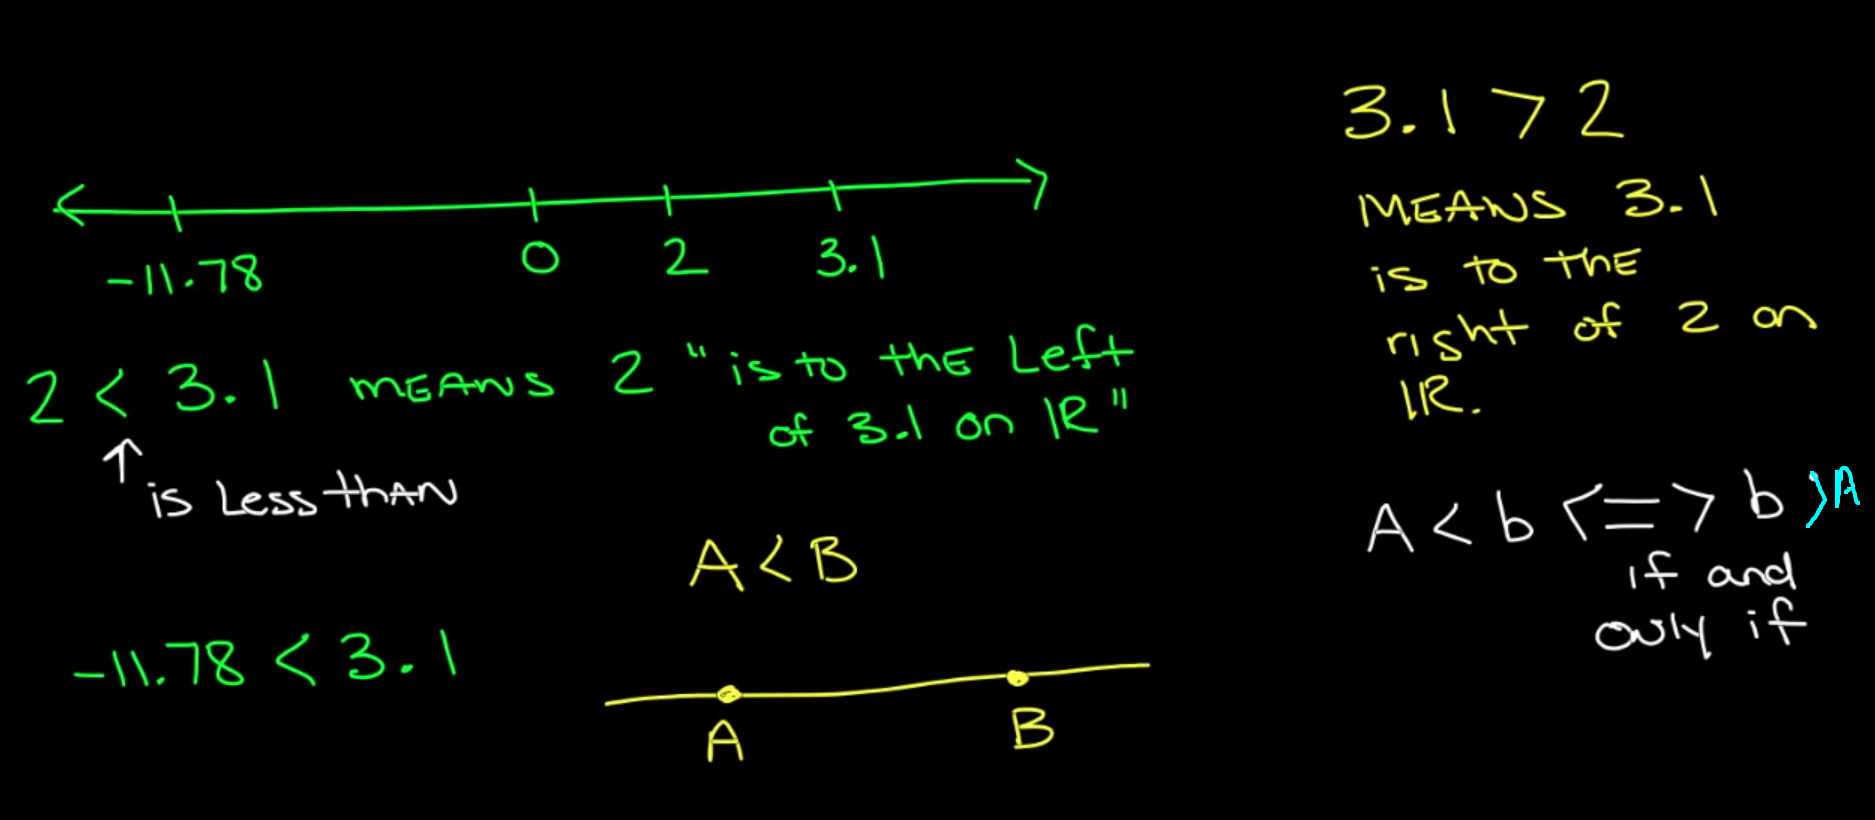 -11.78 0 2 3.1
2 < 3.1 MEANS 2 "is to the Left
of 3.1 on IR"
↑
is Less than
A < B
-11.78 < 3.1
A B
3.1 > 2
MEANS 3.1
is to the
right of 2 on
IR.
A < b <=> b > A
if and
only if